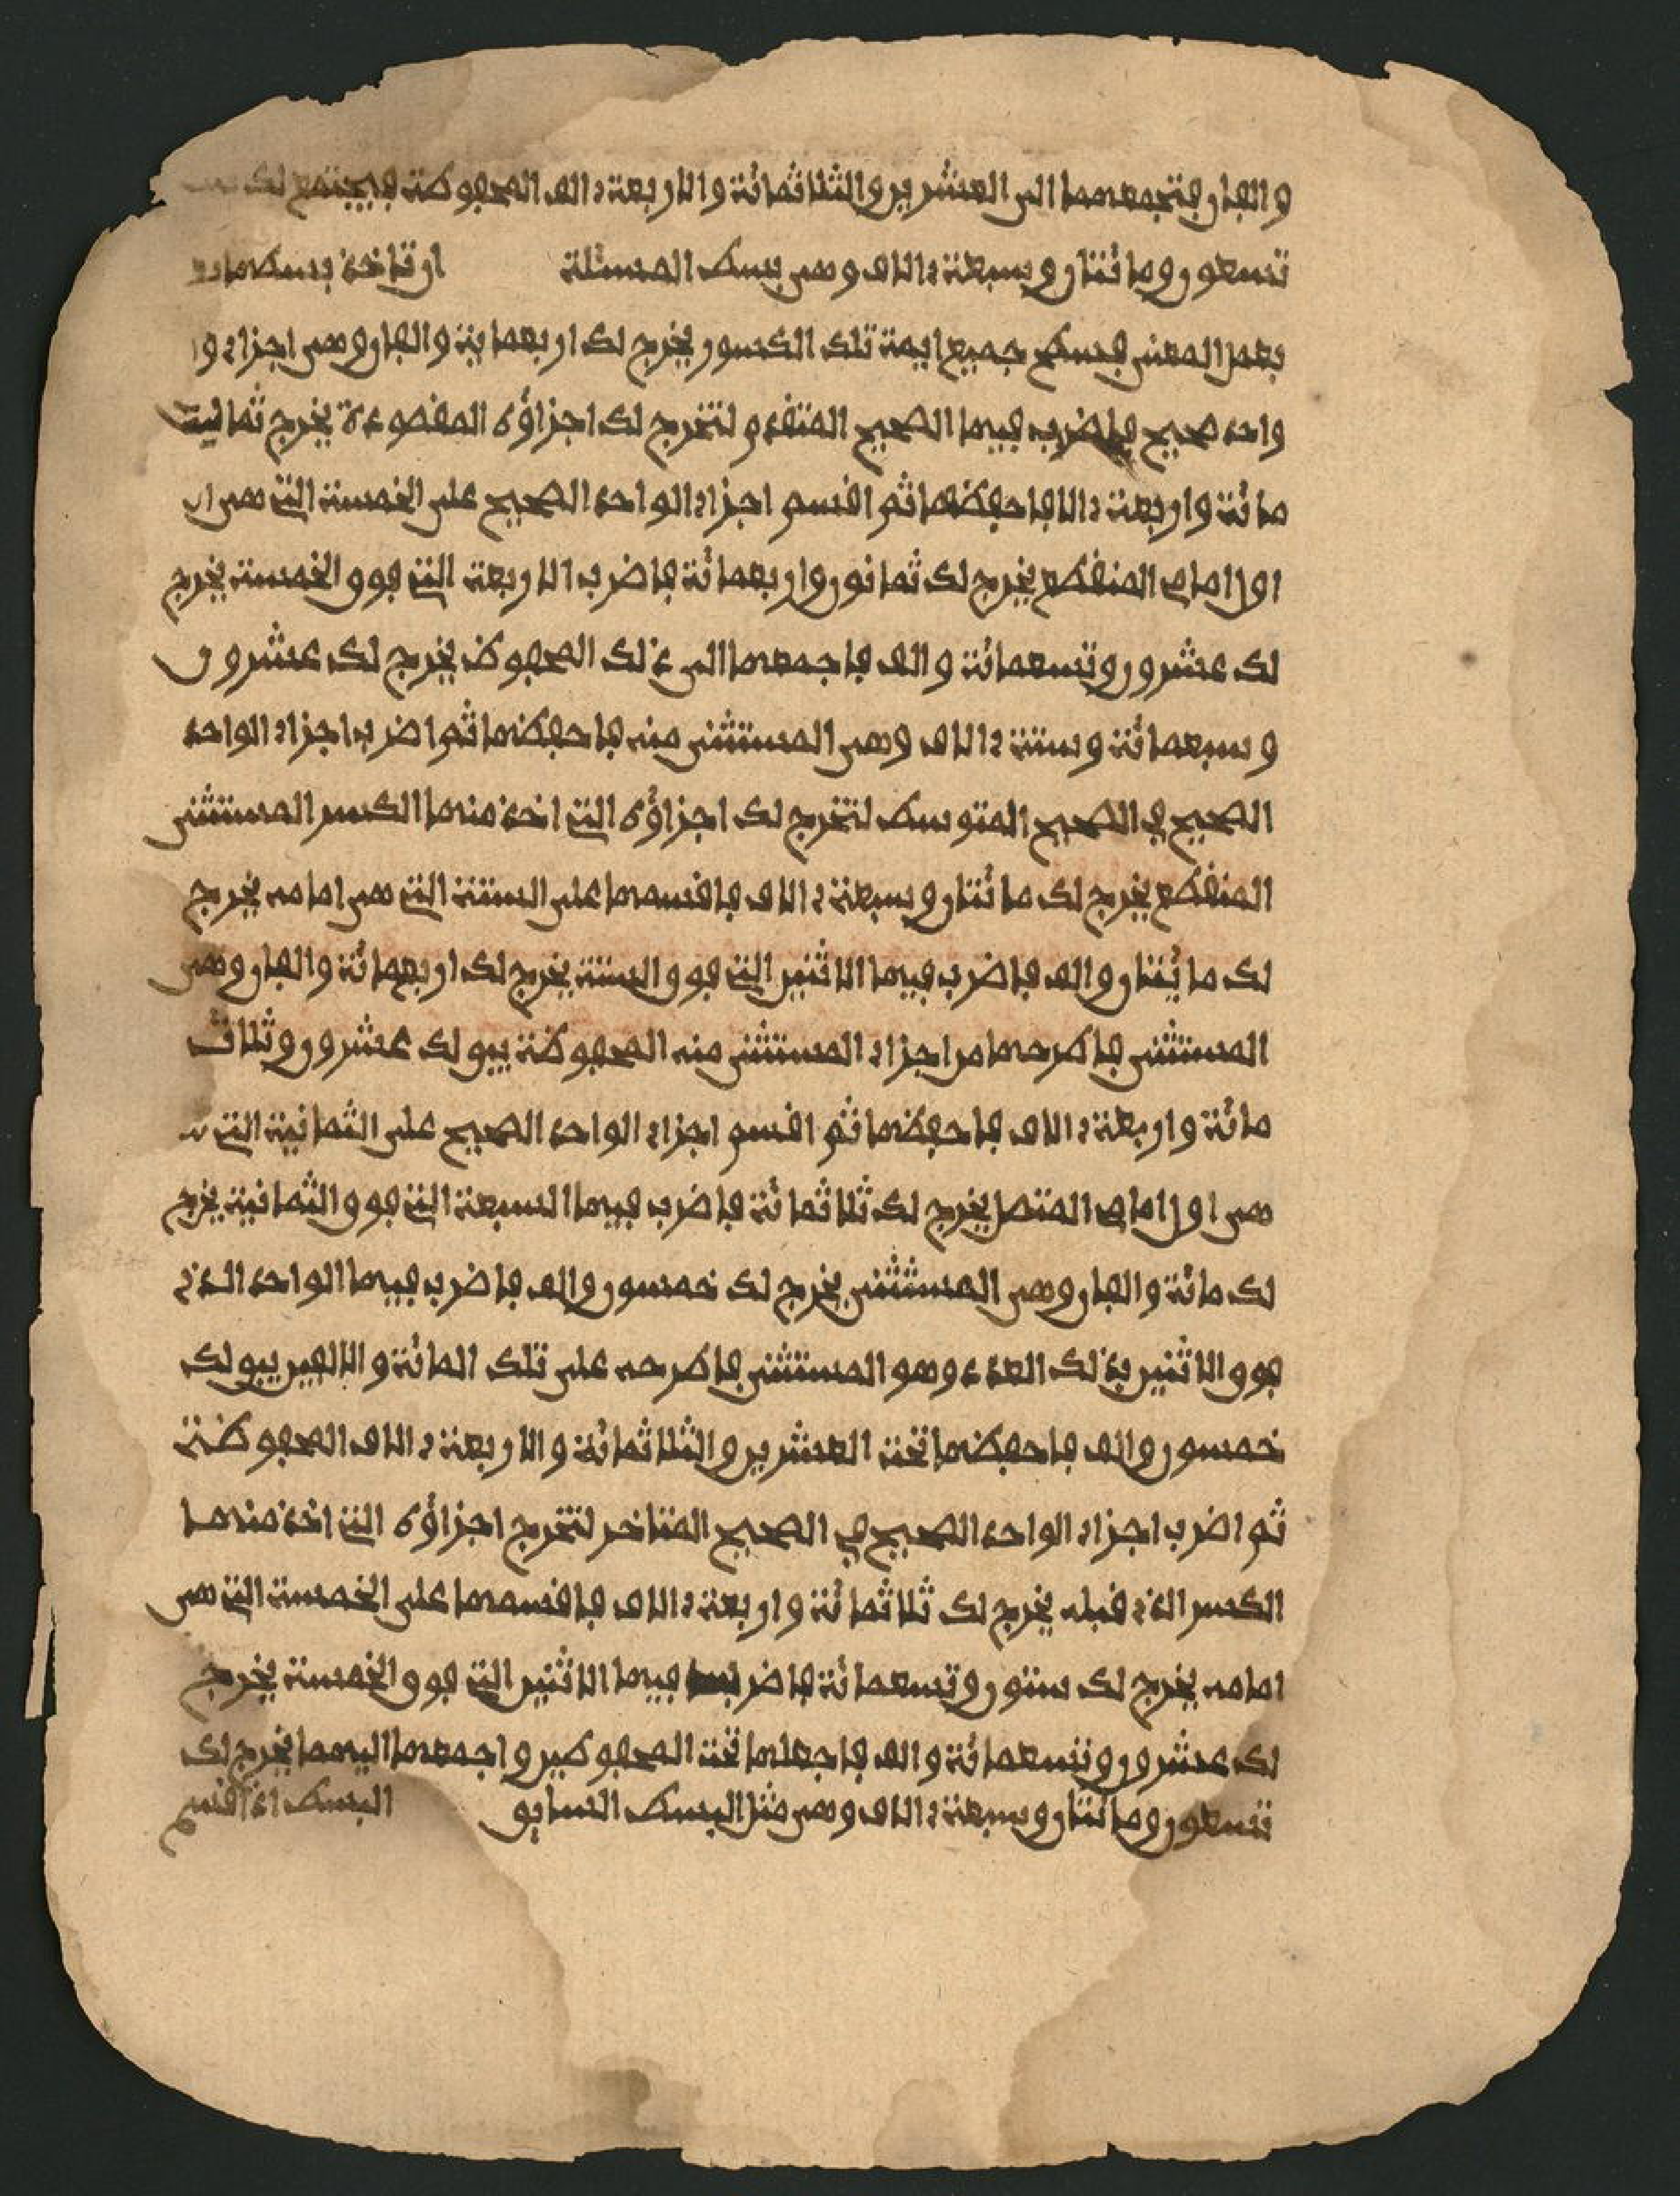 والفان فتجمعهما الى العشرين والثلاثمائة والاربعة ءالاف المحفوظة فيجتمع لك
تسعون ومائتان وسبعة ءالاف وهى بسط المسئلة ان تاخذ بسطها
بهذا المعنى فسطح جميع ايمة تلك الكسور يخرج لك اربعماية والفان وهى اجزاء
واحد صحيح فاضرب فيها الصحيح المتقدم لتخرج لك اجزاؤه المقصودة يخرج ثمانية
مائة واربعة ءالاف احفظها ثم اقسم اجزاء الواحد الصحيح على الخمسة التى هى
اول امام المنقطع يخرج لك ثمانون واربعمائة فاضرب الاربعة التى فوق الخمسة يخرج
لك عشرون وتسعمائة والف فاجمعها الى ذلك المحفوظ يخرج لك عشرون
وسبعمائة وستة ءالاف وهى المستثنى منه فاحفظها ثم اضرب اجزاء الواحد
الصحيح فى الصحيح المتوسط لتخرج لك اجزاؤه التى اخذ منها الكسر المستثنى
المنقطع يخرج لك مائتان وسبعة ءالاف فاقسمها على الستة التى هى امامه يخرج
لك مائتان والف فاضرب فيها الاثنين التى فوق الستة يخرج لك اربعمائة والفان وهى
المستثنى فاطرحها من اجزاء المستثنى منه المحفوظة يبق لك عشرون وثلاث
مائة واربعة ءالاف فاحفظها ثم اقسم اجزاء الواحد الصحيح على الثمانية التى
هى اول امام المتصل يخرج لك ثلاثمائة فاضرب فيها السبعة التى فوق الثمانية يخرج
لك مائة والفان وهى المستثنى يخرج لك خمسون والف فاضرب فيها الواحد الذى
فوق الاثنين بذلك العدد وهو المستثنى فاطرحه على تلك المائة والالفين يبق لك
خمسون والف فاحفظها تحت العشرين والثلاثمائة والاربعة ءالاف المحفوظة
ثم اضرب اجزاء الواحد الصحيح فى الصحيح المتاخر لتخرج اجزاؤه التى اخذ منها
الكسر الذى قبله يخرج لك ثلاثمائة واربعة ءالاف فاقسمها على الخمسة التى هى
امامه يخرج لك ستون وتسعمائة فاضرب فيها الاثنين التى فوق الخمسة يخرج
لك عشرون وتسعمائة والف فاجعلها تحت المحفوظين واجمعها اليهما يخرج لك
تسعون ومائتان وسبعة ءالاف وهى مثل البسط السابق البسط اذا قسم